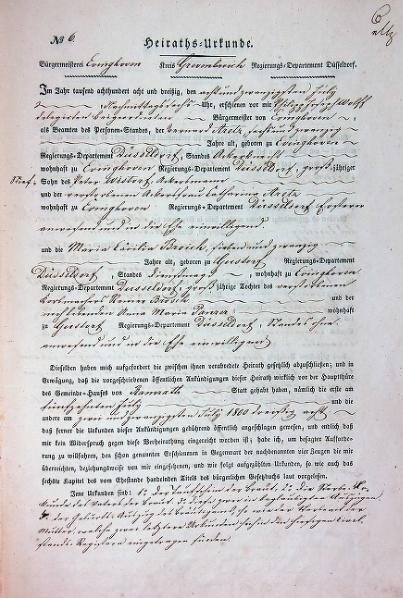 № 6.
Heiraths-Urkunde.
Bürgermeisterei Evinghoven Kreis Grevenbroich Regierungs-Departement Düsseldorf.
Im Jahr tausend achthundert acht und dreißig, den acht und zwanzigsten July
Nachmittags sechs Uhr, erschienen vor mir Philipp Joseph Wolff
delegirten Beigeordneten Bürgermeister von Evinghoven,
als Beamten des Personen-Standes, der Bernard Aretz, sechs und zwanzig
Jahre alt, geboren zu Evinghoven
Regierungs-Departement Düsseldorf, Standes Ackerknecht
wohnhaft zu Evinghoven Regierungs-Departement Düsseldorf, groß jähriger
Stief- Sohn des Peter Ackermann
und der verstorbenen Catharina Aretz
wohnhaft zu Evinghoven Regierungs-Departement Düsseldorf, Ersterer
anwesend und in die Ehe einwilligend
und die Maria Cäcilia Broich, sieben und zwanzig
Jahre alt, geboren zu Gustorf Regierungs-Departement
Düsseldorf, Standes Dienstmagd, wohnhaft zu Evinghoven
Regierungs-Departement Düsseldorf, groß jährige Tochter des verstorbenen
Korbmachers Broich und der
noch lebenden Anna Maria wohnhaft
zu Gustorf Regierungs-Departement Düsseldorf, Standes ohne
anwesend und in die Ehe einwilligend
Dieselben haben mich aufgefordert die zwischen ihnen verabredete Heirath gesetzlich abzuschließen; und in
Erwägung, daß die vorgeschriebenen öffentlichen Ankündigungen dieser Heirath wirklich vor der Hauptthüre
des Gemeinde-Hauses von Statt gehabt haben, nämlich die erste am
fünfzehnten July und die
andere am zwei und zwanzigsten July 1800 dreißig acht
daß ferner die Urkunden dieser Ankündigungen gebührend öffentlich angeschlagen gewesen, und endlich daß
mir kein Widerspruch gegen diese Verheirathung eingereicht worden ist; habe ich, um besagter Aufforderung
zu willfahren, den schon genannten Geschlossenen in Gegenwart der nachbenannten vier Zeugen die mir
überreichten, beziehungsweise von mir eingesehenen, und wie folgt aufgezählten Urkunden, so wie auch das
sechste Kapitel des vom Ehestande handelnden Titels des bürgerlichen Gesetzbuchs laut vorgelesen.
Jene Urkunden sind: 1., der Taufschein der Braut, 2., die Sterbe-
Urkunde des Vaters der Braut, diese zwei in beglaubigten Auszügen
3., der Geburts-Auszug des Bräutigams, so wie der
Mutter, welche zwei letztere Urkunden sich in den hiesigen Civil-
stands-Registern eingetragen finden.